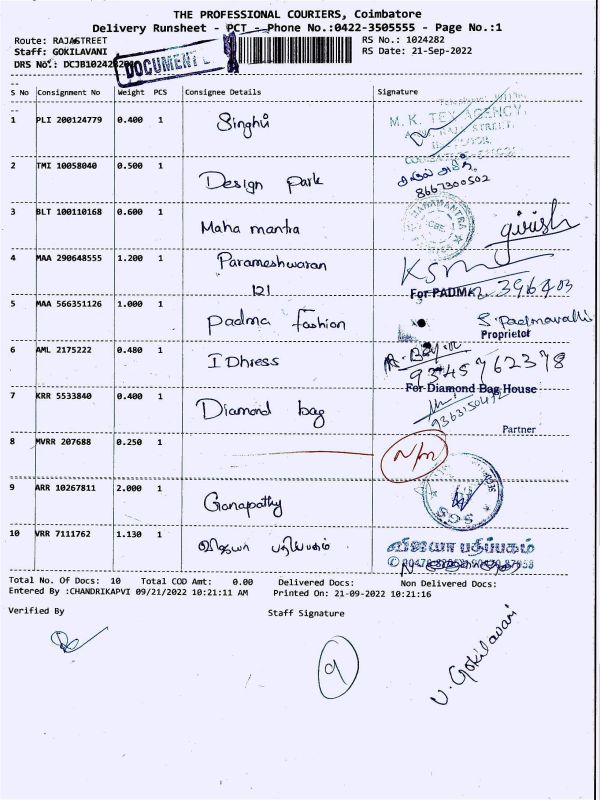 THE PROFESSIONAL COURIERS, Coimbatore
Delivery Runsheet - PCT - Phone No.:0422-3505555 - Page No.:1
Route: RAJASTREET RS No.: 1024282
Staff: GOKILAVANI RS Date: 21-Sep-2022
DRS No.: DCJB1024282
DOCUMENT
S No Consignment No Weight PCS Consignee Details Signature
M. K. TEX AGENCY,
1 PLI 200124779 0.400 1 Singhvi
2 TMI 10058040 0.500 1 Design park
8667300502
3 BLT 100110168 0.600 1 Maha mantra
MAHAMANTRA CBE girish
4 MAA 290648555 1.200 1 Parameshwaran
121
For PADMA
5 MAA 566351126 1.000 1 Padma fashion
S. Padmavathi
Proprietor
6 AML 2175222 0.480 1 I Dhress
9345762378
For Diamond Bag House
7 KRR 5533840 0.400 1 Diamond bag
Partner
8 MVRR 207688 0.250 1 N/m
9 ARR 10267811 2.000 1 Ganapathy
SGS
10 VRR 7111762 1.130 1 விஜயா பதிப்பகம்
விஜயா பதிப்பகம்
Total No. Of Docs: 10 Total COD Amt: 0.00 Delivered Docs: Non Delivered Docs:
Entered By :CHANDRIKAPVI 09/21/2022 10:21:11 AM Printed On: 21-09-2022 10:21:16
Verified By Staff Signature
9
V. Gokilavani